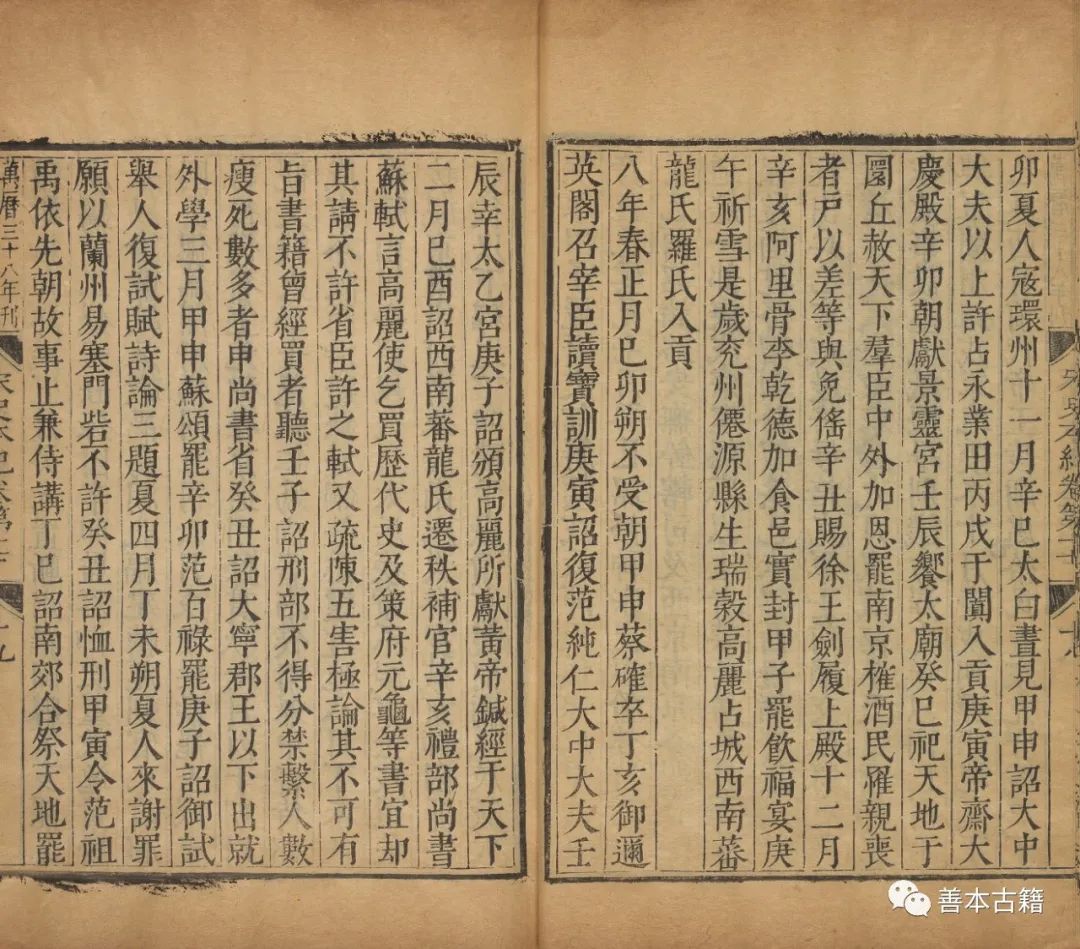 卯夏人寇環州十一月辛巳太白晝見甲申詔大中
大夫以上許占永業田丙戌于闐入貢庚寅帝齋大
慶殿辛卯朝獻景靈宮壬辰饗太廟癸巳祀天地于
圜丘赦天下羣臣中外加恩罷南京榷酒民罹親喪
者戸以差等與免徭辛丑賜徐王劍履上殿十二月
辛亥阿里骨李乾德加食邑實封甲子罷飲福宴庚
午祈雪是歲兖州僊源縣生瑞穀高麗占城西南蕃
龍氏羅氏入貢
八年春正月巳卯朔不受朝甲申蔡確卒丁亥御邇
英閣召宰臣讀寶訓庚寅詔復范純仁大中大夫壬
辰幸太乙宮庚子詔頒高麗所獻黃帝鍼經于天下
二月巳酉詔西南蕃龍氏遷秩補官辛亥禮部尚書
蘇軾言高麗使乞買歷代史及策府元龜等書宜却
其請不許省臣許之軾又疏陳五害極論其不可有
旨書籍曾經買者聽壬子詔刑部不得分禁繫人數
瘐死數多者申尚書省癸丑詔大寧郡王以下出就
外學三月甲申蘇頌罷辛卯范百祿罷庚子詔御試
舉人復試賦詩論三題夏四月丁未朔夏人來謝罪
願以蘭州易塞門砦不許癸丑詔恤刑甲寅令范祖
禹依先朝故事止兼侍講丁巳詔南郊合祭天地罷
萬曆三十八年刊